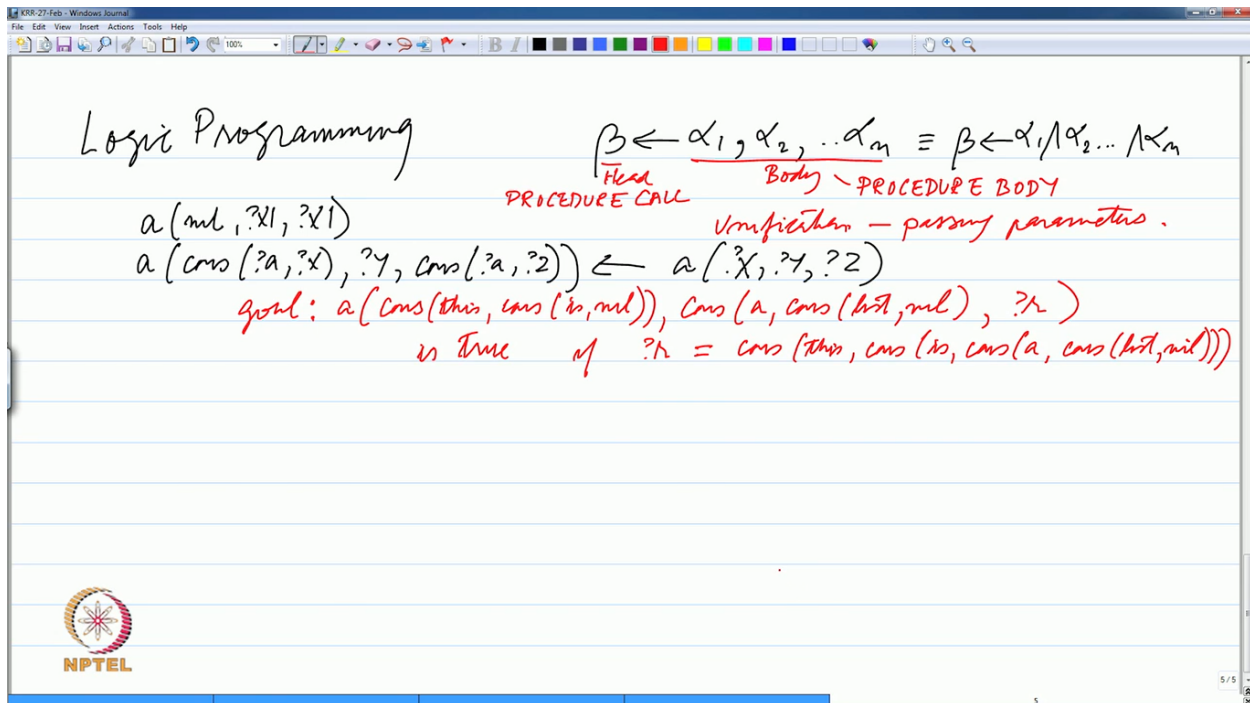 KRR-27-Feb - Windows Journal
File Edit View Insert Actions Tools Help
100%
B I
Logic Programming
β ← α1, α2, ..αn ≡ β ← α1 ∧ α2... ∧ αn
Head
Body - PROCEDURE BODY
PROCEDURE CALL
Unification - passing parameters.
a(nil, ?X1, ?X1)
a(cons(?a, ?X), ?Y, cons(?a, ?Z)) ← a(?X, ?Y, ?Z)
goal: a(cons(this, cons(is, nil)), cons(a, cons(list, nil), ?r)
is true if ?r = cons(this, cons(is, cons(a, cons(list, nil)))
NPTEL
5 / 5
5